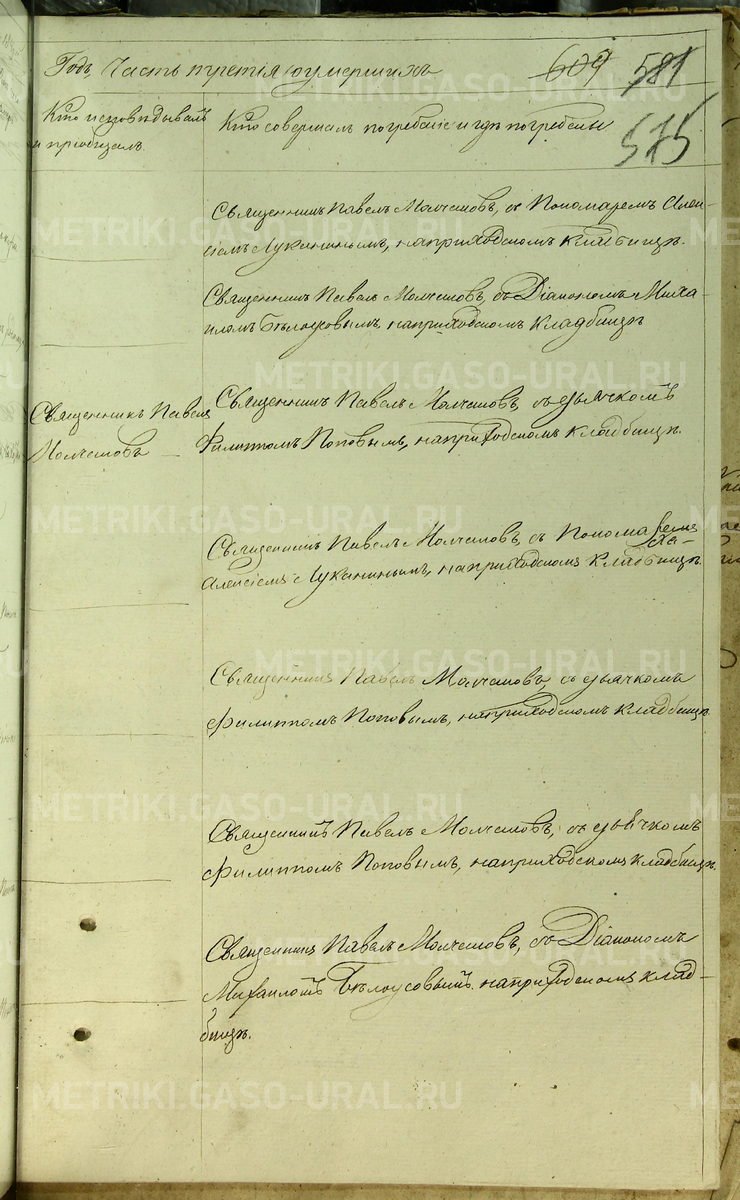 Годъ, Часть третія о умершихъ
609 581
575
Кто исповѣдывалъ
и пріобщалъ
Кто совершалъ погребеніе и гдѣ погребены
Священникъ Павелъ Молчановъ, съ Пономаремъ Алек-
сіемъ Луканинымъ, на приходскомъ кладбищѣ.
Священникъ Павелъ Молчановъ, съ Діакономъ Миха-
иломъ Бѣлоусовымъ, на приходскомъ кладбищѣ
Священникъ Павелъ
Молчановъ
Священникъ Павелъ Молчановъ, съ дьячкомъ
Филиппомъ Поповымъ, на приходскомъ кладбищѣ.
Священникъ Павелъ Молчановъ, съ Пономаремъ
Алексіемъ Луканинымъ, на приходскомъ кладбищѣ.
Священникъ Павелъ Молчановъ, съ дьячкомъ
Филиппомъ Поповымъ, на приходскомъ кладбищѣ.
Священникъ Павелъ Молчановъ, съ дьячкомъ
Филиппомъ Поповымъ, на приходскомъ кладбищѣ.
Священникъ Павелъ Молчановъ, съ Діакономъ
Михаиломъ Бѣлоусовымъ на приходскомъ клад-
бищѣ.
METRIKI.GASO-URAL.RU